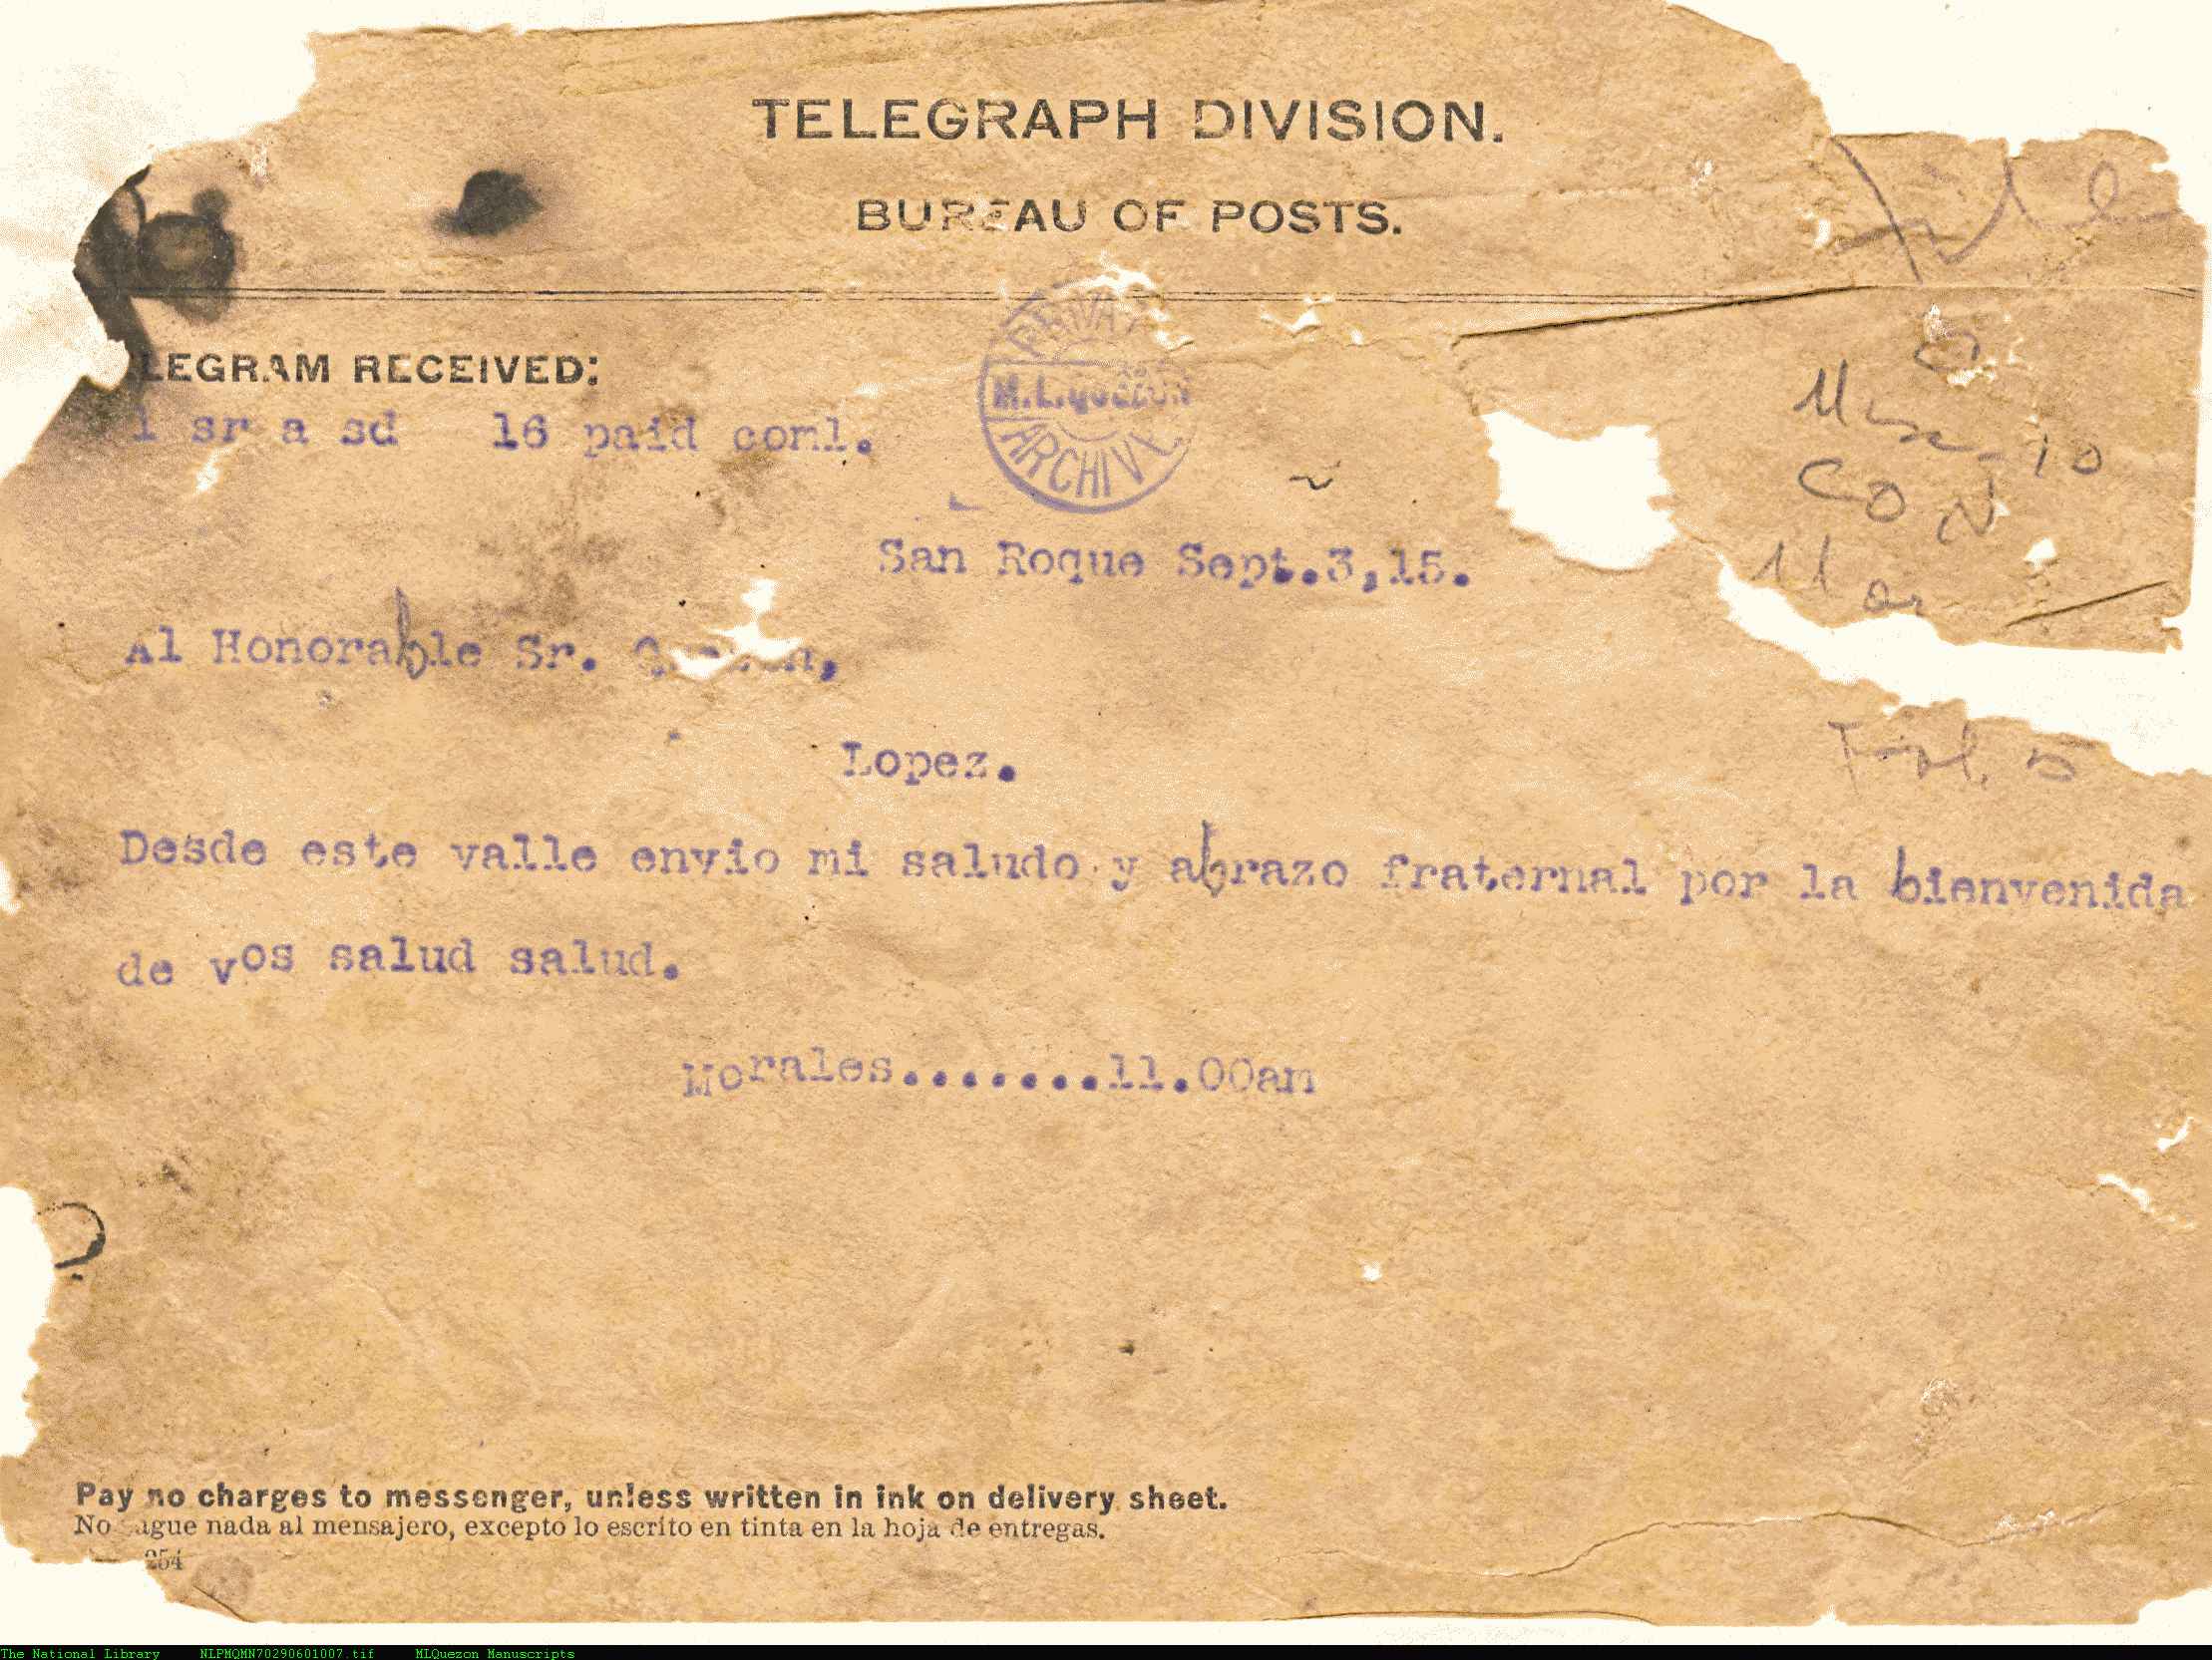 TELEGRAPH DIVISION.
BUREAU OF POSTS.
LEGRAM RECEIVED:
PRIVAT
M.L.QUEZON
ARCHIVE
1 sr a sd 16 paid coml.
San Roque Sept.3,15.
Al Honorable Sr.
Lopez.
Desde este valle envio mi saludo y abrazo fraternal por la bienvenida
de vos salud salud.
Morales.......11.00am
10
CON
5
Pay no charges to messenger, unless written in ink on delivery sheet.
No ague nada al mensajero, excepto lo escrito en tinta en la hoja de entregas.
254
The National Library NLPMQMN70290601007.tif MLQuezon Manuscripts